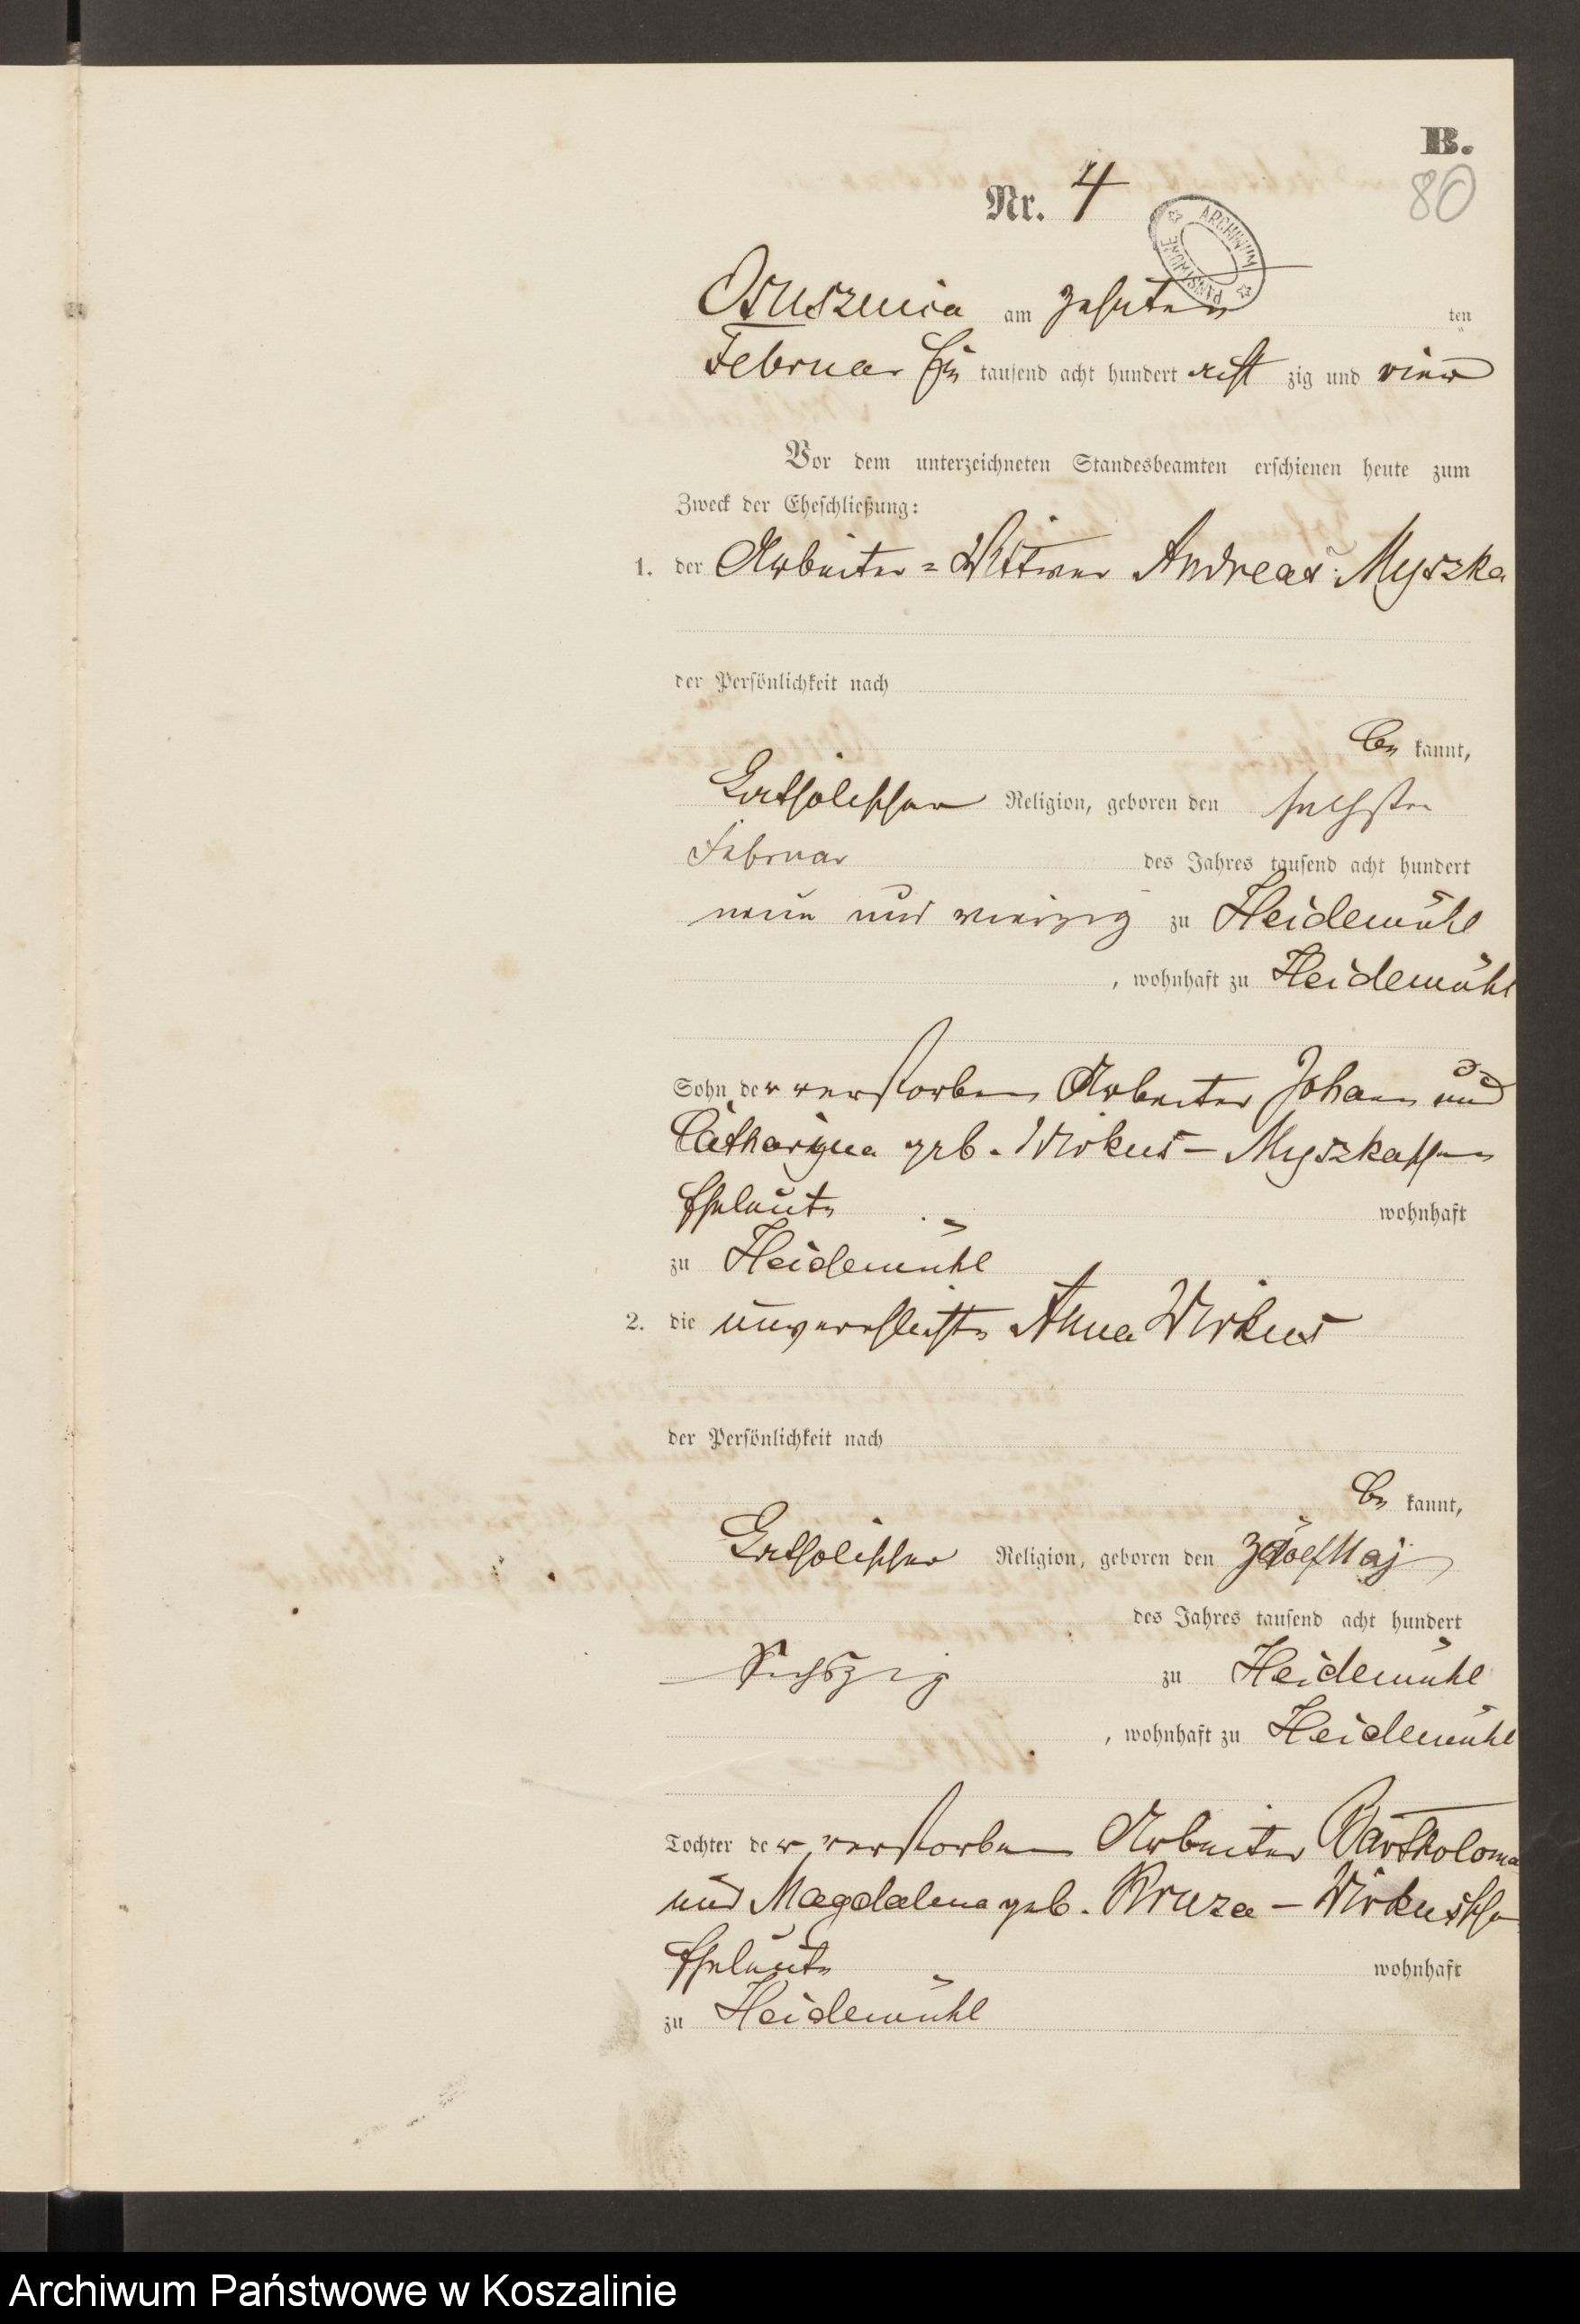 B.
80
Nr. 4
ARCHIWUM PAŃSTWOWE
Osusznica am zehnten ten
Februar Ein tausend acht hundert acht zig und vier
Vor dem unterzeichneten Standesbeamten erschienen heute zum
Zweck der Eheschließung:
1. der Arbeiter = Wittwer Andreas Myszka
der Persönlichkeit nach
be kannt,
katholischer Religion, geboren den sechsten
Februar des Jahres tausend acht hundert
neun und vierzig zu Heidemühl
, wohnhaft zu Heidemühl
Sohn der verstorbenen Arbeiter Johann und
Catharina geb. Wirkus – Myszkaschen
Eheleute wohnhaft
zu Heidemühl
2. die unverehelichte Anna Wirkus
der Persönlichkeit nach
be kannt,
katholischer Religion, geboren den zwölf Maj
des Jahres tausend acht hundert
Sechszig zu Heidemühl
, wohnhaft zu Heidemühl
Tochter der verstorbenen Arbeiter Bartholomä
und Magdalena geb. Bruza – Wirkussche
Eheleute wohnhaft
zu Heidemühl
Archiwum Państwowe w Koszalinie